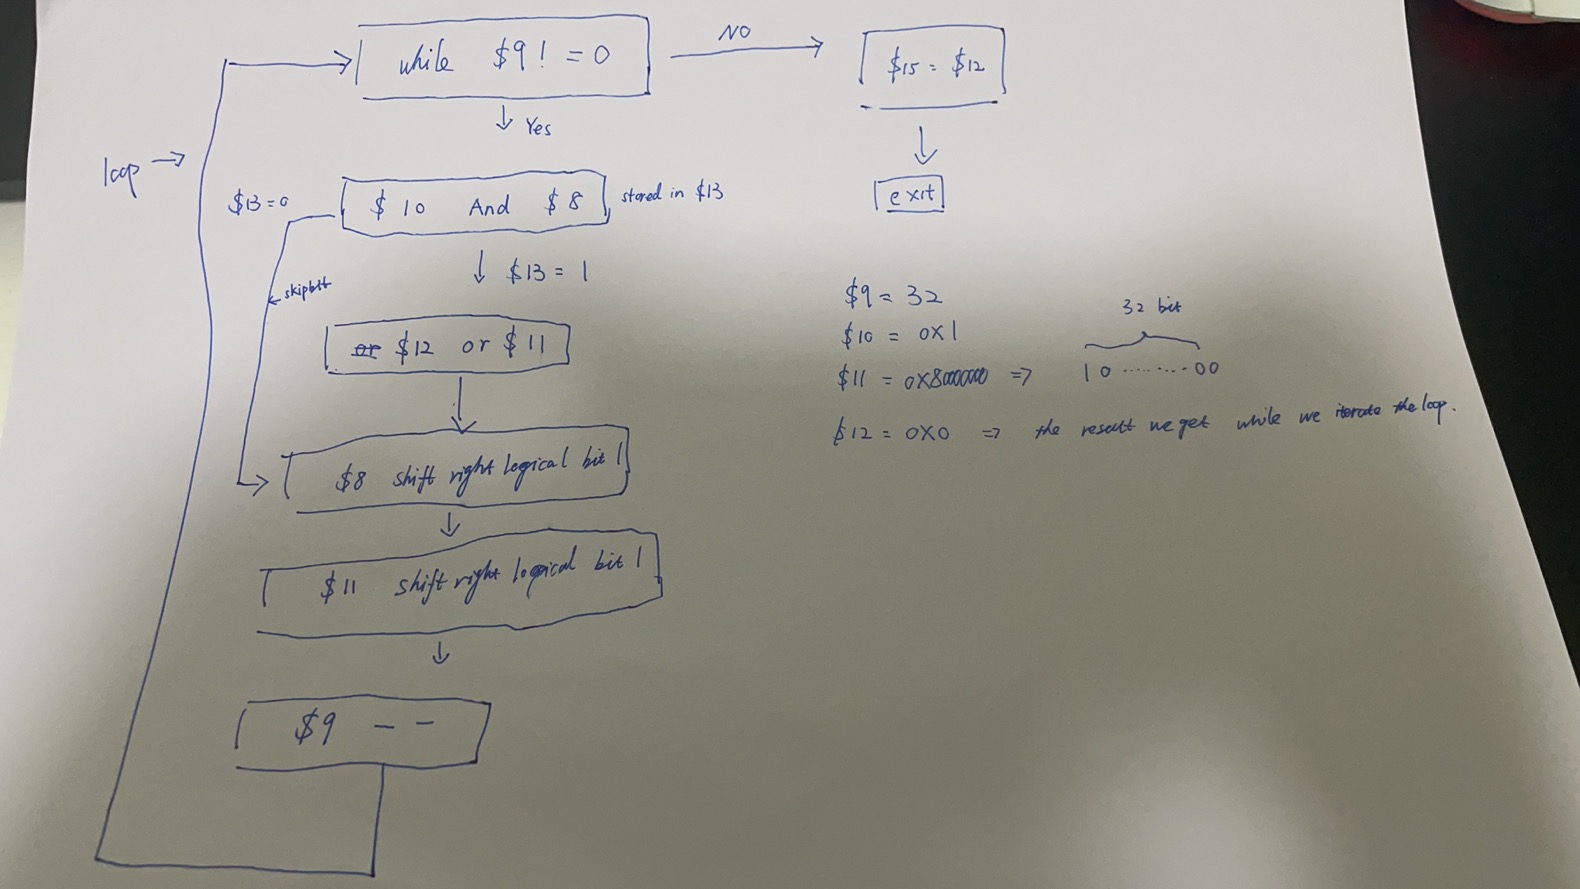 while $9! = 0
NO
$15 = $12
Yes
exit
loop
$13 = 0
$10 And $8
stored in $13
$13 = 1
skipbit
$12 or $11
$8 shift right logical bit 1
$11 shift right logical bit 1
$9 - -
$9 = 32
$10 = 0x1
32 bit
$11 = 0x80000000 => 10.........00
$12 = 0x0 => the result we get while we iterate the loop.